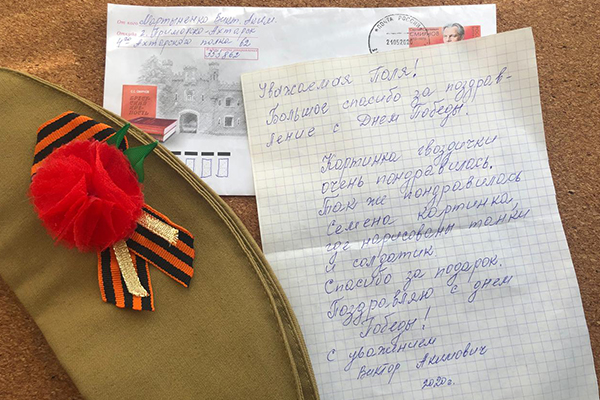 От кого Мартыненко Викт. Аким.
Откуда г. Приморско-Ахтарск
Ахтарского полка 62
353862
ПОЧТА РОССИИ
СМИРНОВ
С.С. СМИРНОВ
БРЕСТСКАЯ
КРЕПОСТЬ
Уважаемая Поля!
Большое спасибо за поздрав-
ление с Днем Победы.
Картинка гвоздички
очень пондравилась.
Так же пондравилась
Семена картинка,
где нарисованы танки
и солдатик
Спасибо за подарок.
Поздравляю с днем
Победы!
с уважением
Виктор Акимович
2020г.